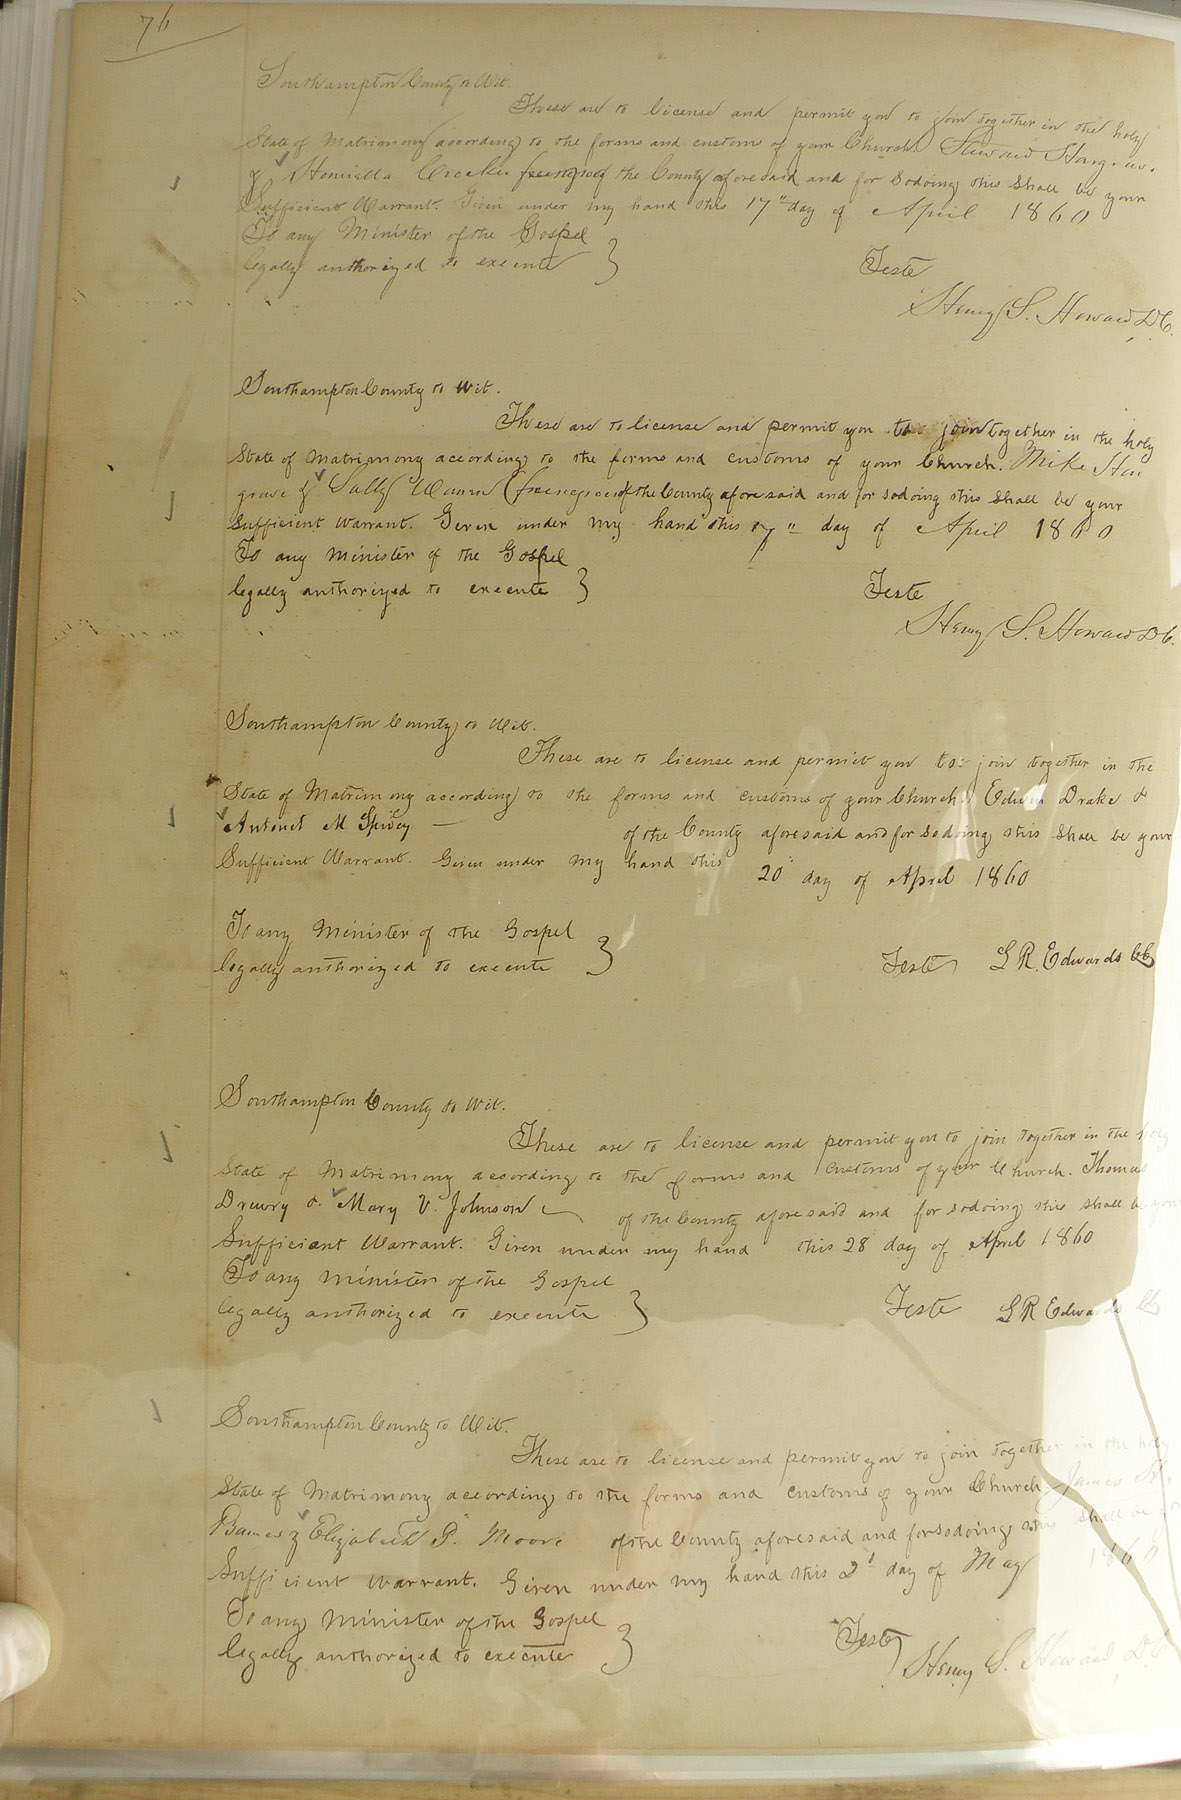 76
Southampton County to Wit.
These are to license and permit you to join together in the holy
State of Matrimony according to the forms and customs of your Church.
& Crocker of the County aforesaid and for so doing this shall be your
Sufficient Warrant. Given under my hand this 17" day of April 1860
To any Minister of the Gospel
legally authorized to execute }
Teste
Henry S. Howard, D.C.
Southampton County to Wit.
These are to license and permit you to join together in the holy
State of Matrimony according to the forms and customs of your Church. Mike Har
grave & Sally (free negroes of the County aforesaid and for so doing this shall be your
Sufficient Warrant. Given under my hand this 17" day of April 1860
To any Minister of the Gospel
legally authorized to execute }
Teste
Henry S. Howard D.C.
Southampton County to Wit.
These are to license and permit you to join together in the
State of Matrimony according to the forms and customs of your Church. Edwin Drake &
Antonet M Spivey — of the County aforesaid and for so doing this shall be your
Sufficient Warrant. Given under my hand this 20" day of April 1860
To any Minister of the Gospel
legally authorized to execute }
Teste L R. Edwards CC
Southampton County to Wit.
These are to license and permit you to join together in the holy
State of Matrimony according to the forms and customs of your Church. Thomas
Drewry & Mary V. Johnson of the County aforesaid and for so doing this shall be your
Sufficient Warrant. Given under my hand this 28 day of April 1860
To any Minister of the Gospel
legally authorized to execute }
Teste L R Edwards CC
Southampton County to Wit.
These are to license and permit you to join together in the holy
State of Matrimony according to the forms and customs of your Church James
Barnes & Elizabeth P. Moore of the County aforesaid and for so doing this shall be
Sufficient Warrant. Given under my hand this 2d day of May 1860
To any Minister of the Gospel
legally authorized to execute }
Teste
Henry S. Howard, D.C.